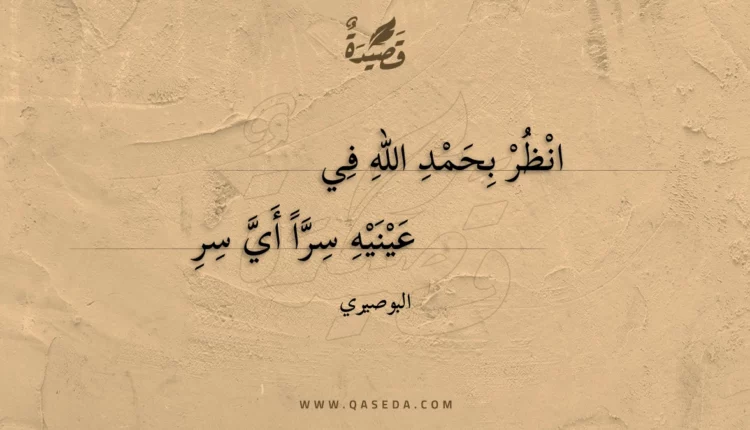 قَصِيدَةٌ
انْظُرْ بِحَمْدِ اللهِ فِي
عَيْنَيْهِ سِرَّاً أَيَّ سِرِ
البوصيري
WWW.QASEDA.COM